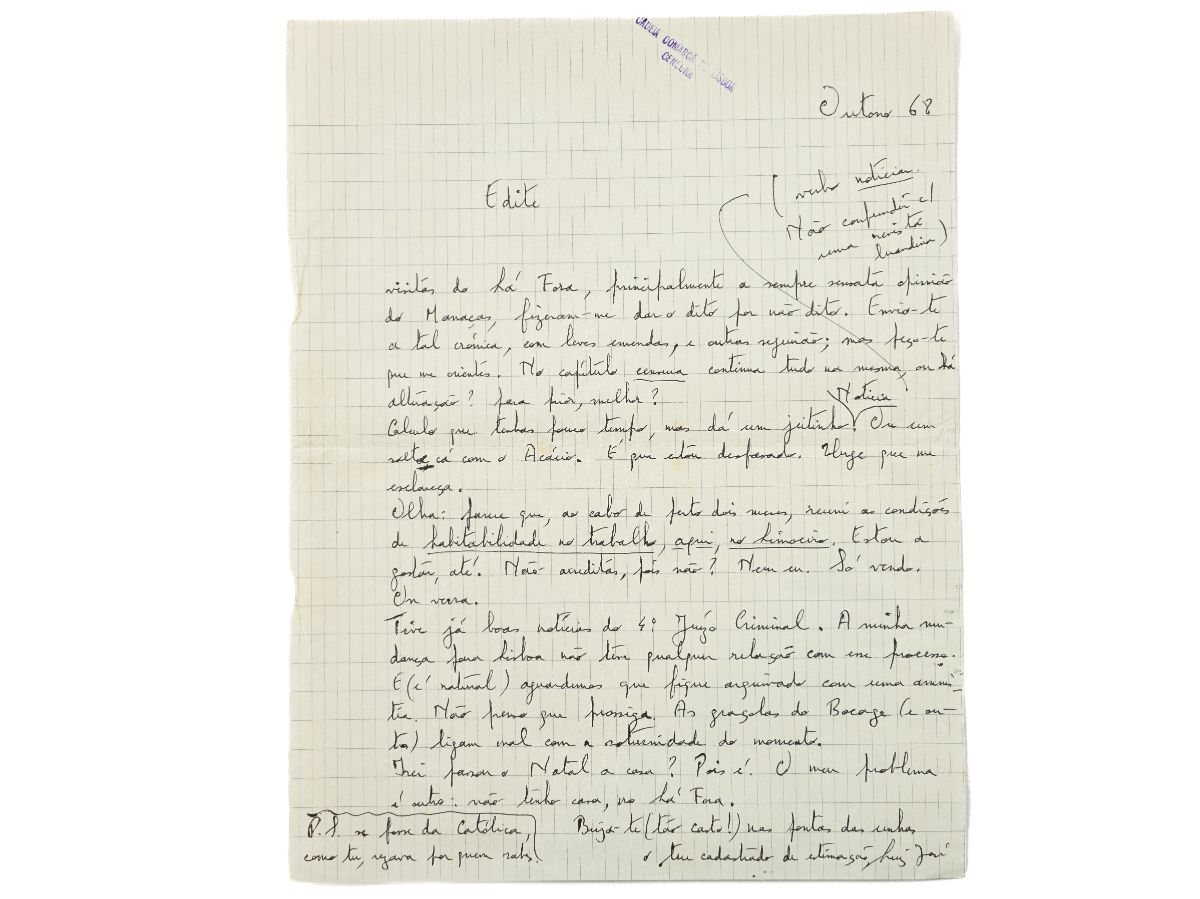 CADEIA COMARCA DE LISBOA
CENSURA
Outono 68
Edite
(verbo noticiar.
Não confundir c/
uma revista
luandina)
visitas do há Fora, principalmente a sempre sensata opinião
do Manaças, fizeram-me dar o dito por não dito. Envio-te
a tal crónica, com leves emendas, e outras seguirão; mas peço-te
que me orientes. No capítulo censura continua tudo na mesma, ou há
alteração? para pior, melhor?
Noticia!
Calculo que tenhas pouco tempo, mas dá um jeitinho. Ou um
salto cá com o Acácio. É que estou desfasado. Urge que me
esclareça.
Olha: parece que, ao cabo de perto dois meses, reuni as condições
de habitabilidade no trabalho, aqui, no Limoeiro. Estou a
gostar, até! Não acreditas, pois não? Nem eu. Só vendo.
On verra.
Tive já boas notícias do 4º Juízo Criminal. A minha mu-
dança para Lisboa não têm qualquer relação com esse processo.
E (é natural) aguardemos que fique arquivado com uma amnis-
tia. Não penso que prossiga. As graçolas do Bocage (e ou-
tos) ligam mal com a soturnidade do momento.
Irei passar o Natal a casa? Pois é! O meu problema
é outro: não tenho casa, no há Fora.
Beijo-te (tão casto!) nas pontas das unhas
o teu cadastrado de estimação, Luiz José
P.S. se fosse da Católica,
como tu, rezava por quem sabes!